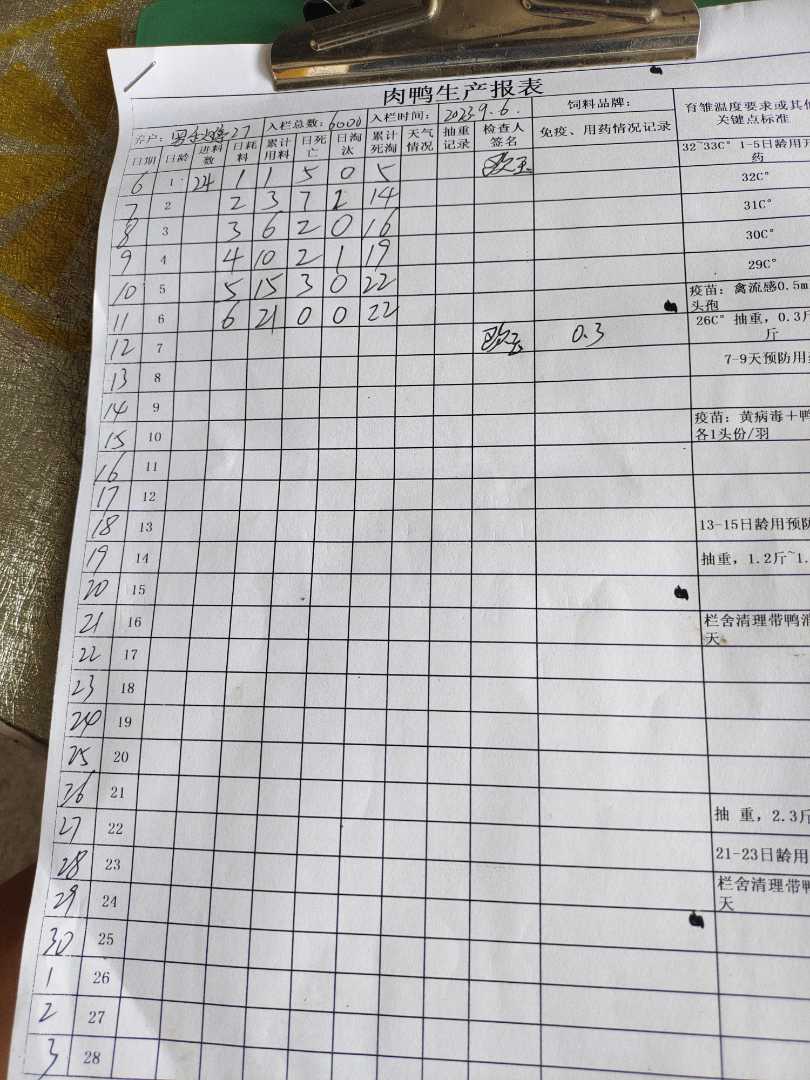 肉鸭生产报表
养户: 27 入栏总数: 6000 入栏时间: 2023.9.6. 饲料品牌: 育雏温度要求或其他关键点标准
日期 日龄 进料数 日耗料 累计用料 日死亡 日淘汰 累计死淘 天气情况 抽重记录 检查人签名 免疫、用药情况记录
6 1 24 1 1 5 0 5 32~33C° 1-5日龄用开 药
7 2 2 3 7 2 14 32C°
8 3 3 6 2 0 16 31C°
9 4 4 10 2 1 19 30C°
10 5 5 15 3 0 22 29C°
11 6 6 21 0 0 22 疫苗: 禽流感0.5m 头孢
12 7 0.3 26C° 抽重, 0.3斤 斤
13 8 7-9天预防用
14 9
15 10 疫苗: 黄病毒+鸭 各1头份/羽
16 11
17 12
18 13 13-15日龄用预防
19 14 抽重, 1.2斤~1.
20 15
21 16 栏舍清理带鸭消 天
22 17
23 18
24 19
25 20
26 21
27 22 抽 重, 2.3斤
28 23 21-23日龄用
29 24 栏舍清理带鸭 天
30 25
1 26
2 27
3 28